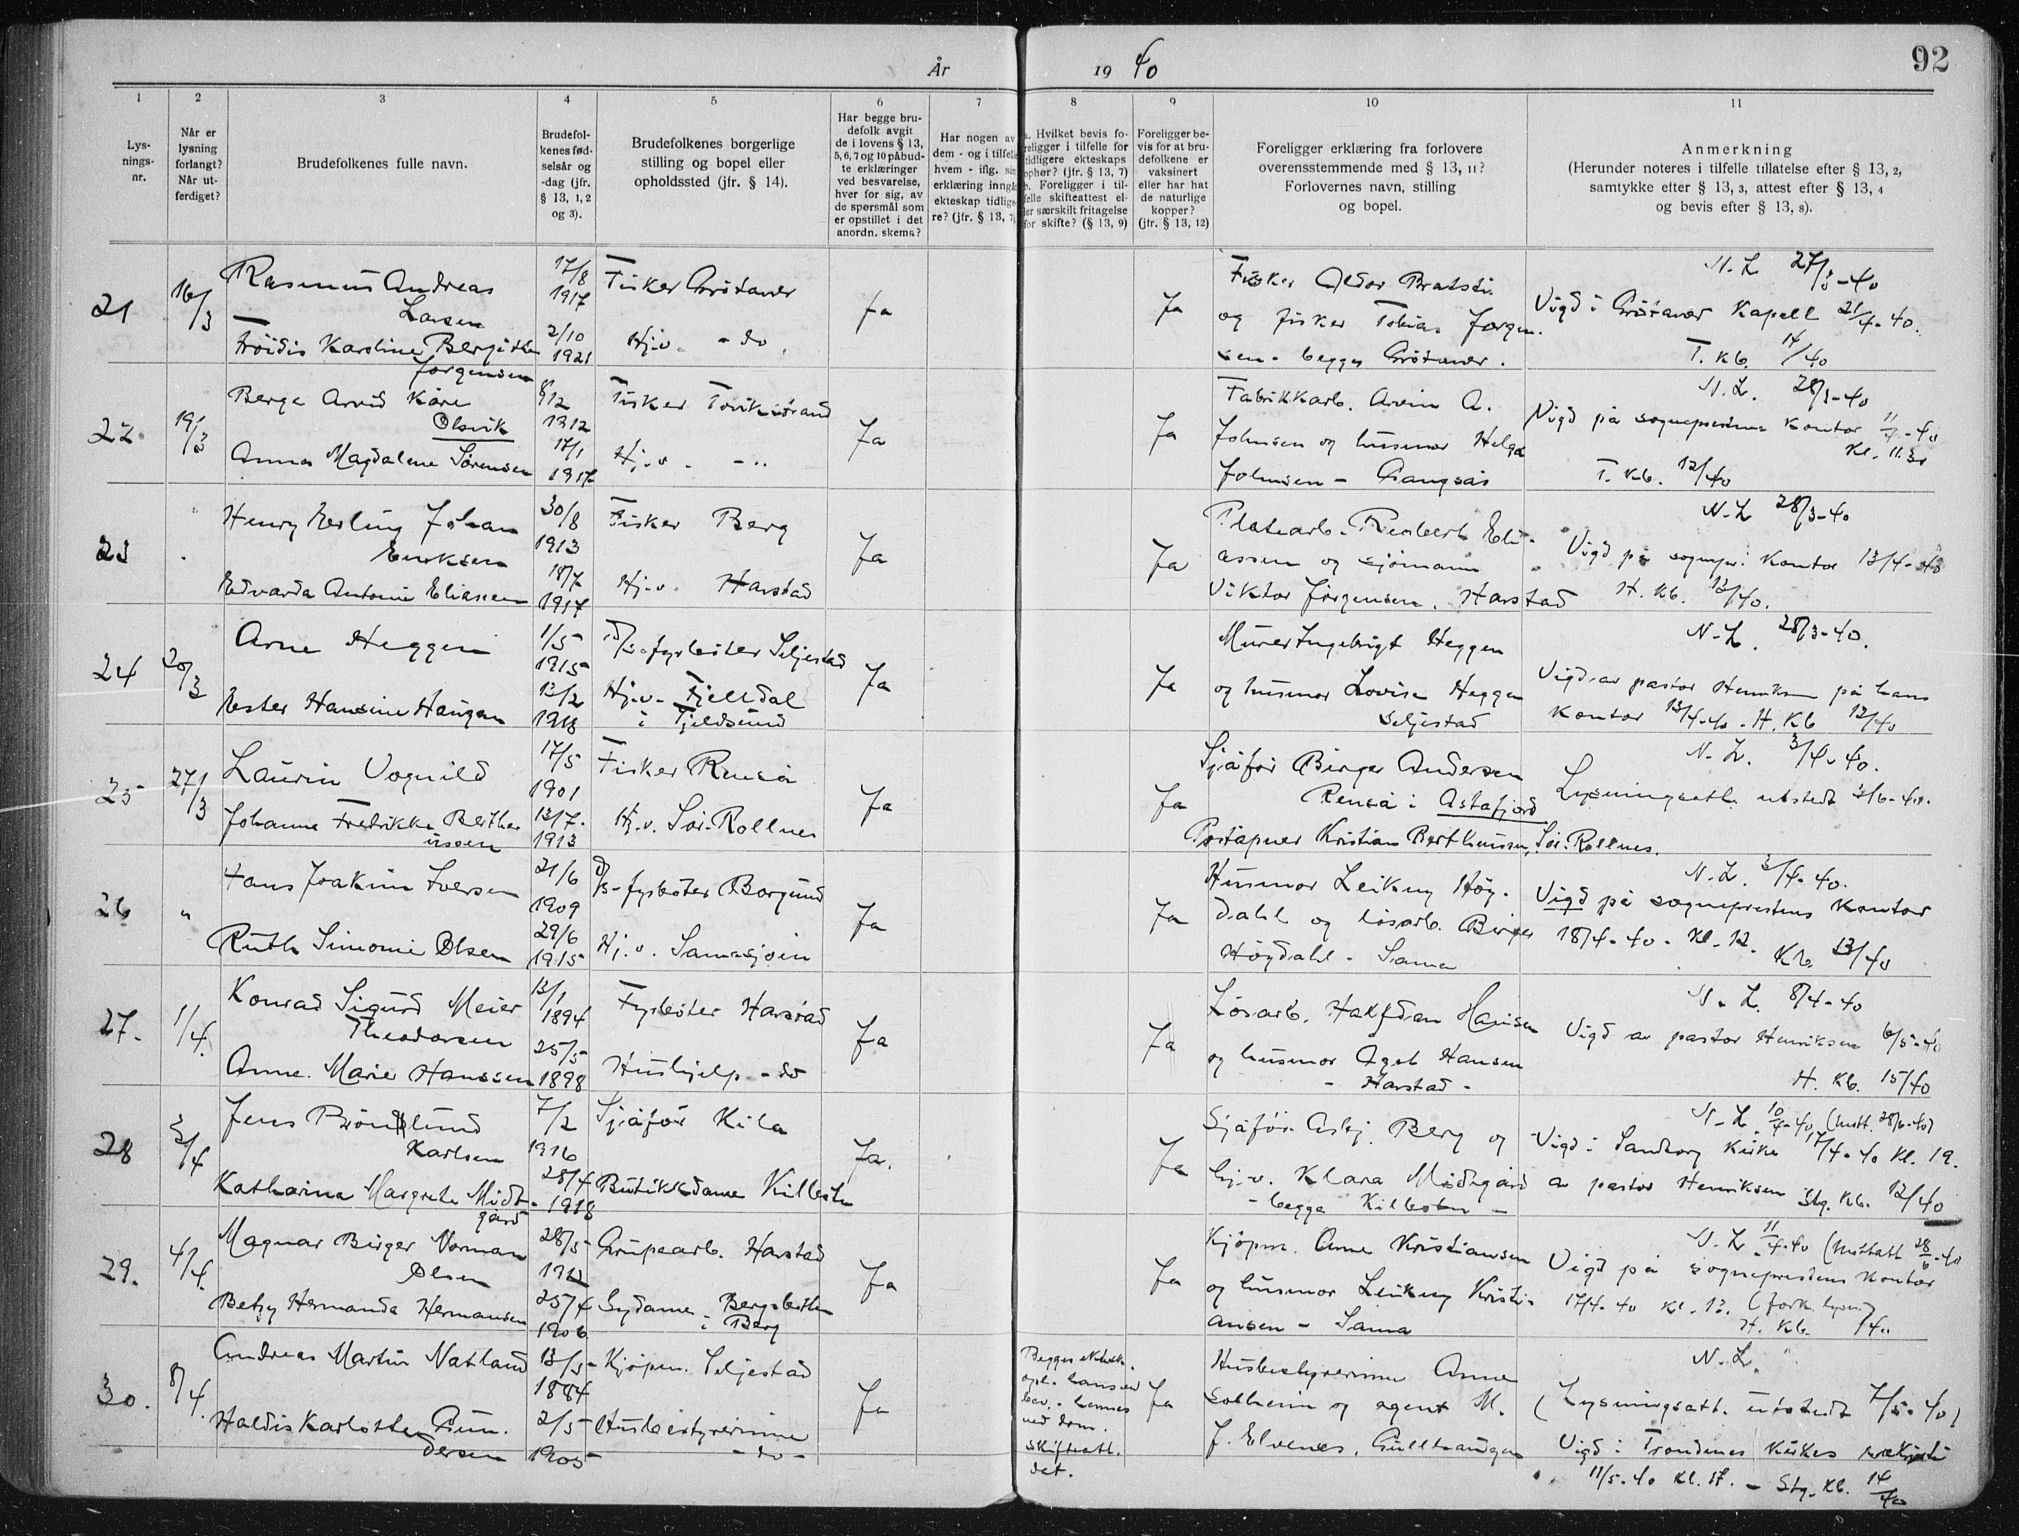 År
19 40
92
1
2
3
4
5
6
7
8
9
10
11
Lys-
nings-
nr.
Når er
lysning
forlangt?
Når ut-
ferdiget?
Brudefolkenes fulle navn.
Brudefol-
kenes fød-
selsår og
-dag (jfr.
§ 13, 1, 2
og 3).
Brudefolkenes borgerlige
stilling og bopel eller
opholdssted (jfr. § 14).
Har begge bru-
defolk avgit
de i lovens § 13,
5, 6, 7 og 10 påbud-
te erklæringer
ved besvarelse,
hver for sig, av
de spørsmål som
er opstillet i det
anordn. skema?
Har nogen av
dem - og i tilfelle
hvem - iflg. sin
erklæring inngå
ekteskap tidlige-
re? (jfr. § 13, 7)
a. Hvilket bevis fo-
religger i tilfelle for
tidligere ekteskaps
ophør? (jfr. § 13, 7)
b. Foreligger i til-
felle skifteattest el-
ler særskilt fritagelse
for skifte? (§ 13, 9)
Foreligger be-
vis for at bru-
defolkene er
vaksinert
eller har hat
de naturlige
kopper?
(jfr. § 13, 12)
Foreligger erklæring fra forlovere
overensstemmende med § 13, 11?
Forlovernes navn, stilling
og bopel.
Anmerkning
(Herunder noteres i tilfelle tillatelse efter § 13, 2,
samtykke efter § 13, 3, attest efter § 13, 4
og bevis efter § 13, 8).
21
16/3
Rasmus Andreas
Larsen
17/8
1917
Fisker Grøtavær
Ja
Ja
Frøidis Karoline Bergitte
Jørgensen
2/10
1921
Hj.v. - do.
Fisker Aldor
og fisker Tobias Jørgen-
sen - begges Grøtavær.
N. L. 27/3-40
Vigd i Grøtavær Kapell 21/4-40.
T. kb. 14/40
22.
19/3
Berge Arvid Kåre
Olsvik
1912
Fisker
Ja
Ja
Anna Magdalene Sørensen
17/1
1917
Hj.v. - "
Fabrikkarb. Arvin A.
Johnsen og husmor Helga
Johnsen - Gangsås
N. L. 28/3-40
Vigd på sogneprestens kontor 11/4-40
kl. 11.30
T. kb. 12/40
23
Henry Erling Johan
Eriksen
30/8
1913
Fisker Berg
Ja
Ja
Edvarda Antonie Eliassen
18/7
1917
Hj.v. Harstad
Platearb. Eli-
assen og sjømann
Viktor Jørgensen. Harstad
N. L 28/3-40
Vigd på sognepr. kontor 13/4-40
H. kb. 12/40.
24
20/3
Arne Heggen
1/5
1915
D/s-fyrbøter Seljestad
Ja
Ja
Ester Hansine Haugan
12/2
1918
Hj.v. Fjelldal
i Tjeldsund
Murer Ingebrigt Heggen
og husmor Lovise Heggen
Seljestad
N. L. 28/3-40.
Vigd av pastor Henriksen på hans
kontor 13/4-40 - H. kb 13/40
25
27/3
Laurin Vognild
17/5
1901
Fisker Renså
Ja
Ja
Johanna Fredrikke Berthe-
ussen
13/7.
1913
Hj.v. Sør-Rollnes
Sjåfør Birger Andersen
Renså i Astafjord
Poståpner Kristian Bertheussen, Sør-Rollnes.
N. L. 3/4-40.
Lysningsatt. utstedt 3/6-40.
26
"
Hans Joakim Iversen
21/6
1909
D/s-fyrbøter Borgund
Ja
Ja
Ruth Simonie Olsen
29/6
1915
Hj.v. Samasjøen
Husmor Leikny Høy-
dahl og løsarb. Birger
Høydahl - Sama
N. L. 3/4-40.
Vigd på sogneprestens kontor
18/4-40 - Kl. 12.
Kb. 13/40
27.
1/4.
Konrad Sigurd Meier
Theodorsen
13/1
1894
Fyrbøter Harstad
Ja
Ja
Anne Marie Hanssen
25/5
1898
Hushjelp - do
Løsarb. Halfdan Hansen
og husmor Agot Hansen
- Harstad -
N. L. 8/4-40
Vigd av pastor Henriksen 6/5-40
H. kb. 15/40
28
2/4
Jens Brønlund
Karlsen
7/2
1916
Sjåfør Kila
Ja.
Ja
Katharina Margrete Midt-
gård
28/4
1918
Butikkdame Kilbotn
Sjåfør Asbj. Berg og
hj.v. Klara Midtgård
- begge Kilbotn -
N. L. 10/4-40 (Mott. 28/6-40)
Vigd i Sandtorg kirke 17/4-40 Kl. 19.
av pastor Henriksen Stg. kb. 12/40
29.
4/4.
Magnar Birger Norman
Olsen
28/5
Harstad
Ja
Ja
Betzy Hermanda Hermansen
25/4
1906
Sydame, Bergsbotn
i Berg
Kjøpm. Arne Kristiansen
og husmor Leikny Kristi-
ansen - Sama
N. L. 11/4-40 (Mottatt 28/6-40
Vigd på sogneprestens kontor
17/4-40 kl. 12. (fork. lysn.)
H. kb. /40
30.
8/4.
Andreas Martin Natland
13/5-
1884
Kjøpm. Seljestad
Ja
Ja
Haldis Karlotte Gun-
dersen
2/5
1905
Husbestyrerinne
- do -
skifteatt.
det.
Husbestyrerinne Anne
Solheim og agent M.
J. Elvenes, Gullhaugen
N. L. "
(Lysningsatt. utstedt 7/5-40)
Vigd i Trondenes kirkes sakristi
11/5-40 Kl. 17. - Stg. kb. 14/40